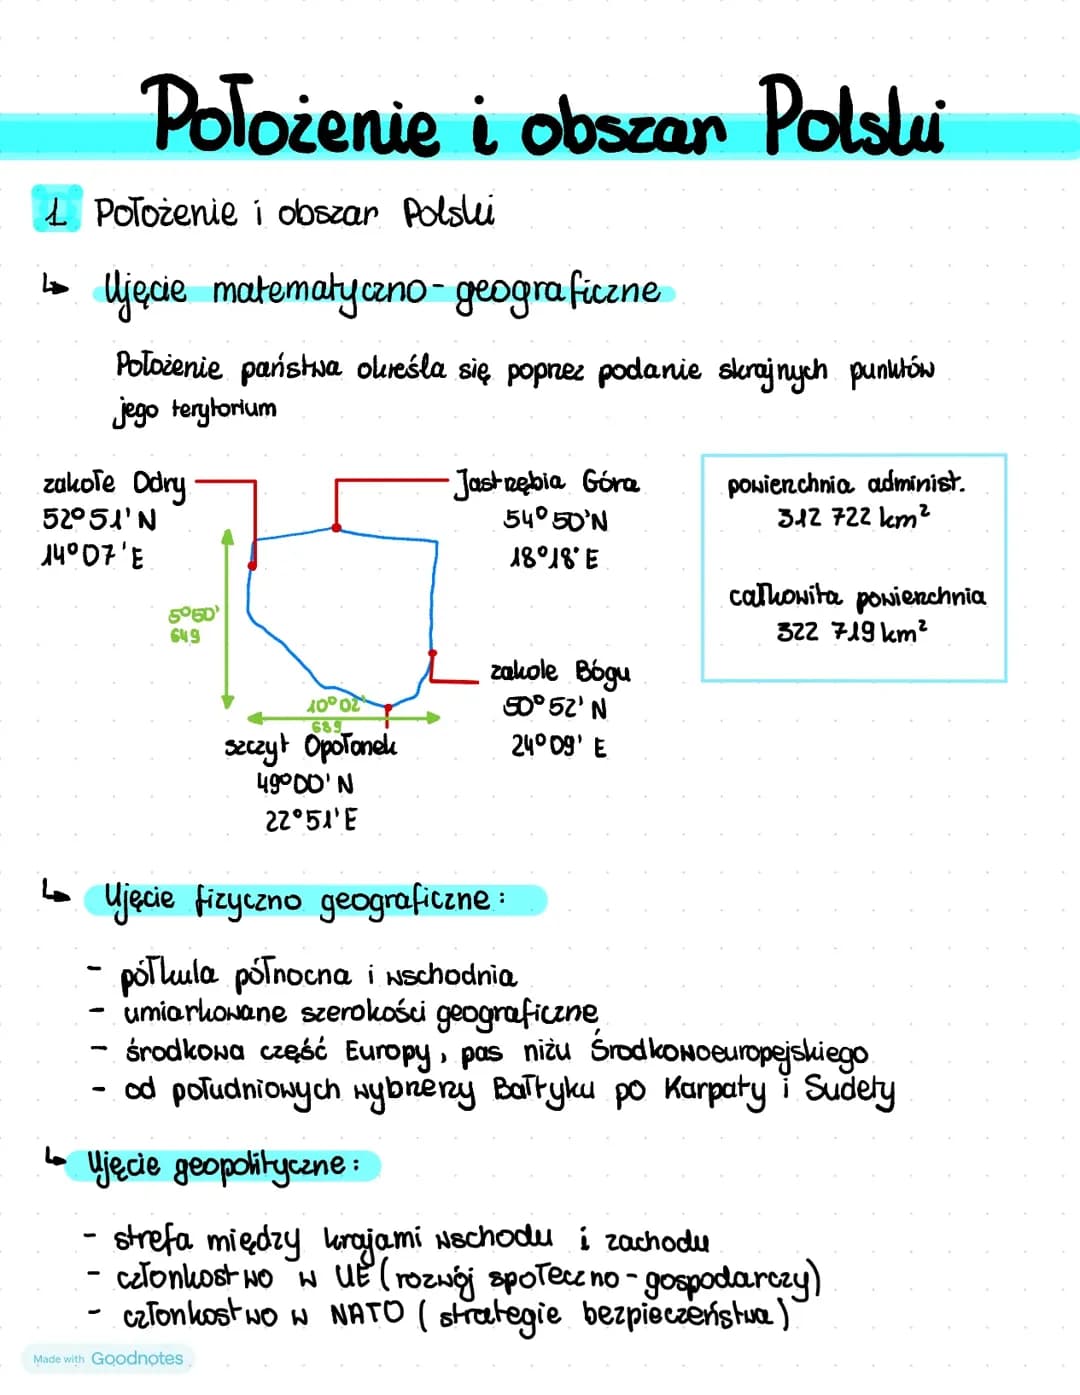 Położenie i obszar Polski
1 Położenie i obszar Polski
↳ Ujęcie matematyczno-geograficzne
Położenie państwa określa się poprzez podanie skrajnych punktów
jego terytorium
zakole Odry
52°51'N
14°07'E
Jastrzębia Góra
54°50'N
18°18'E
powierzchnia administ.
312 722 km²
całkowita powierzchnia
322 719 km²
5°50'
649
zakole Bógu
50°52'N
24°09'E
10°02'
689
szczyt Opołonek
49°00'N
22°51'E
↳ Ujęcie fizyczno geograficzne:
- półkula północna i wschodnia
- umiarkowane szerokości geograficzne
- środkowa część Europy, pas niżu Środkowoeuropejskiego
- od południowych wybrzeży Bałtyku po Karpaty i Sudety
↳ Ujęcie geopolityczne:
- strefa między krajami wschodu i zachodu
- członkostwo w UE (rozwój społeczno-gospodarczy)
- członkostwo w NATO (strategie bezpieczeństwa)
Made with Goodnotes